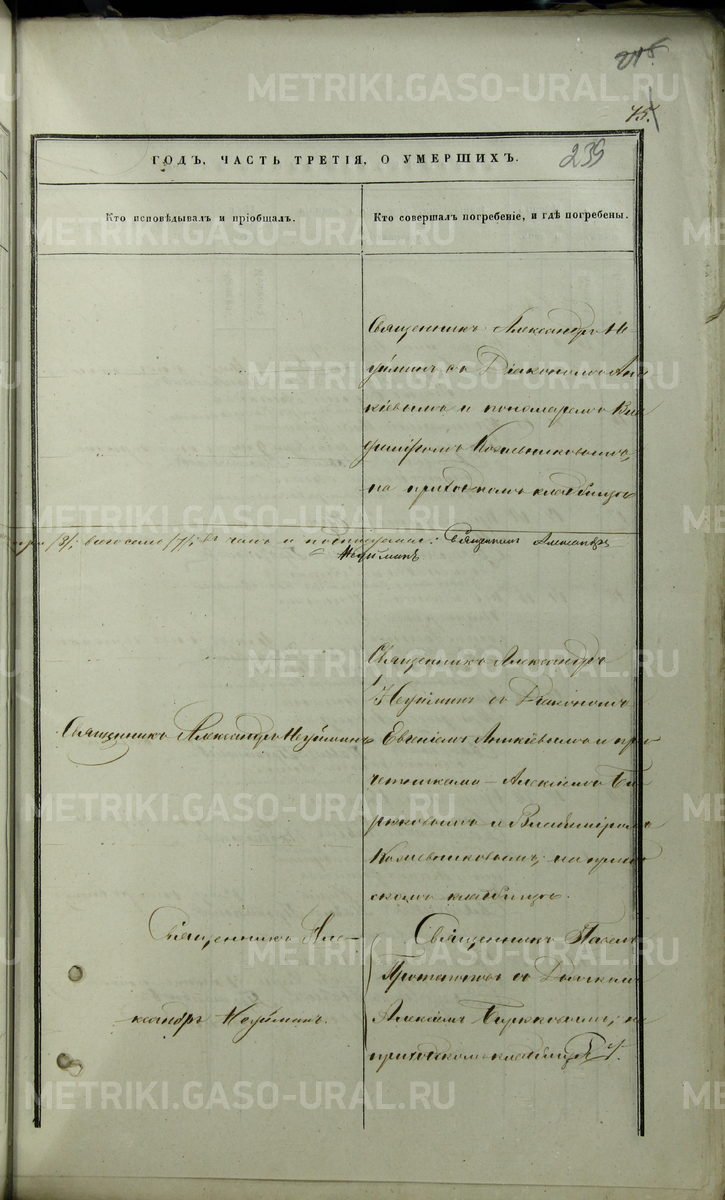 45.
239
ГОДЪ, ЧАСТЬ ТРЕТІЯ, О УМЕРШИХЪ.
Кто исповѣдывалъ и пріобщалъ.
Кто совершалъ погребеніе, и гдѣ погребены.
Священникъ Александръ Не-
уйминъ съ Діакономъ Ани-
кіевымъ и пономаремъ Вла-
диміромъ Кожевниковымъ,
на приходскомъ кладбищѣ
/8/, всего семь /7/, въ часть и Священникъ Александръ
Неуйминъ
Священникъ Александръ Неуйминъ
Священникъ Александръ
Неуйминъ съ Діакономъ
Евгеніемъ Аникіевымъ и при-
четниками Алексіемъ Би-
рюковымъ и Владиміромъ
Кожевниковымъ, на прихо-
скомъ кладбищѣ.
Священникъ Але-
ксандръ Неуйминъ.
Священникъ Павелъ
съ Дьячкомъ
Алексіемъ Бирюковымъ, на
приходскомъ кладбищѣ.
METRIKI.GASO-URAL.RU